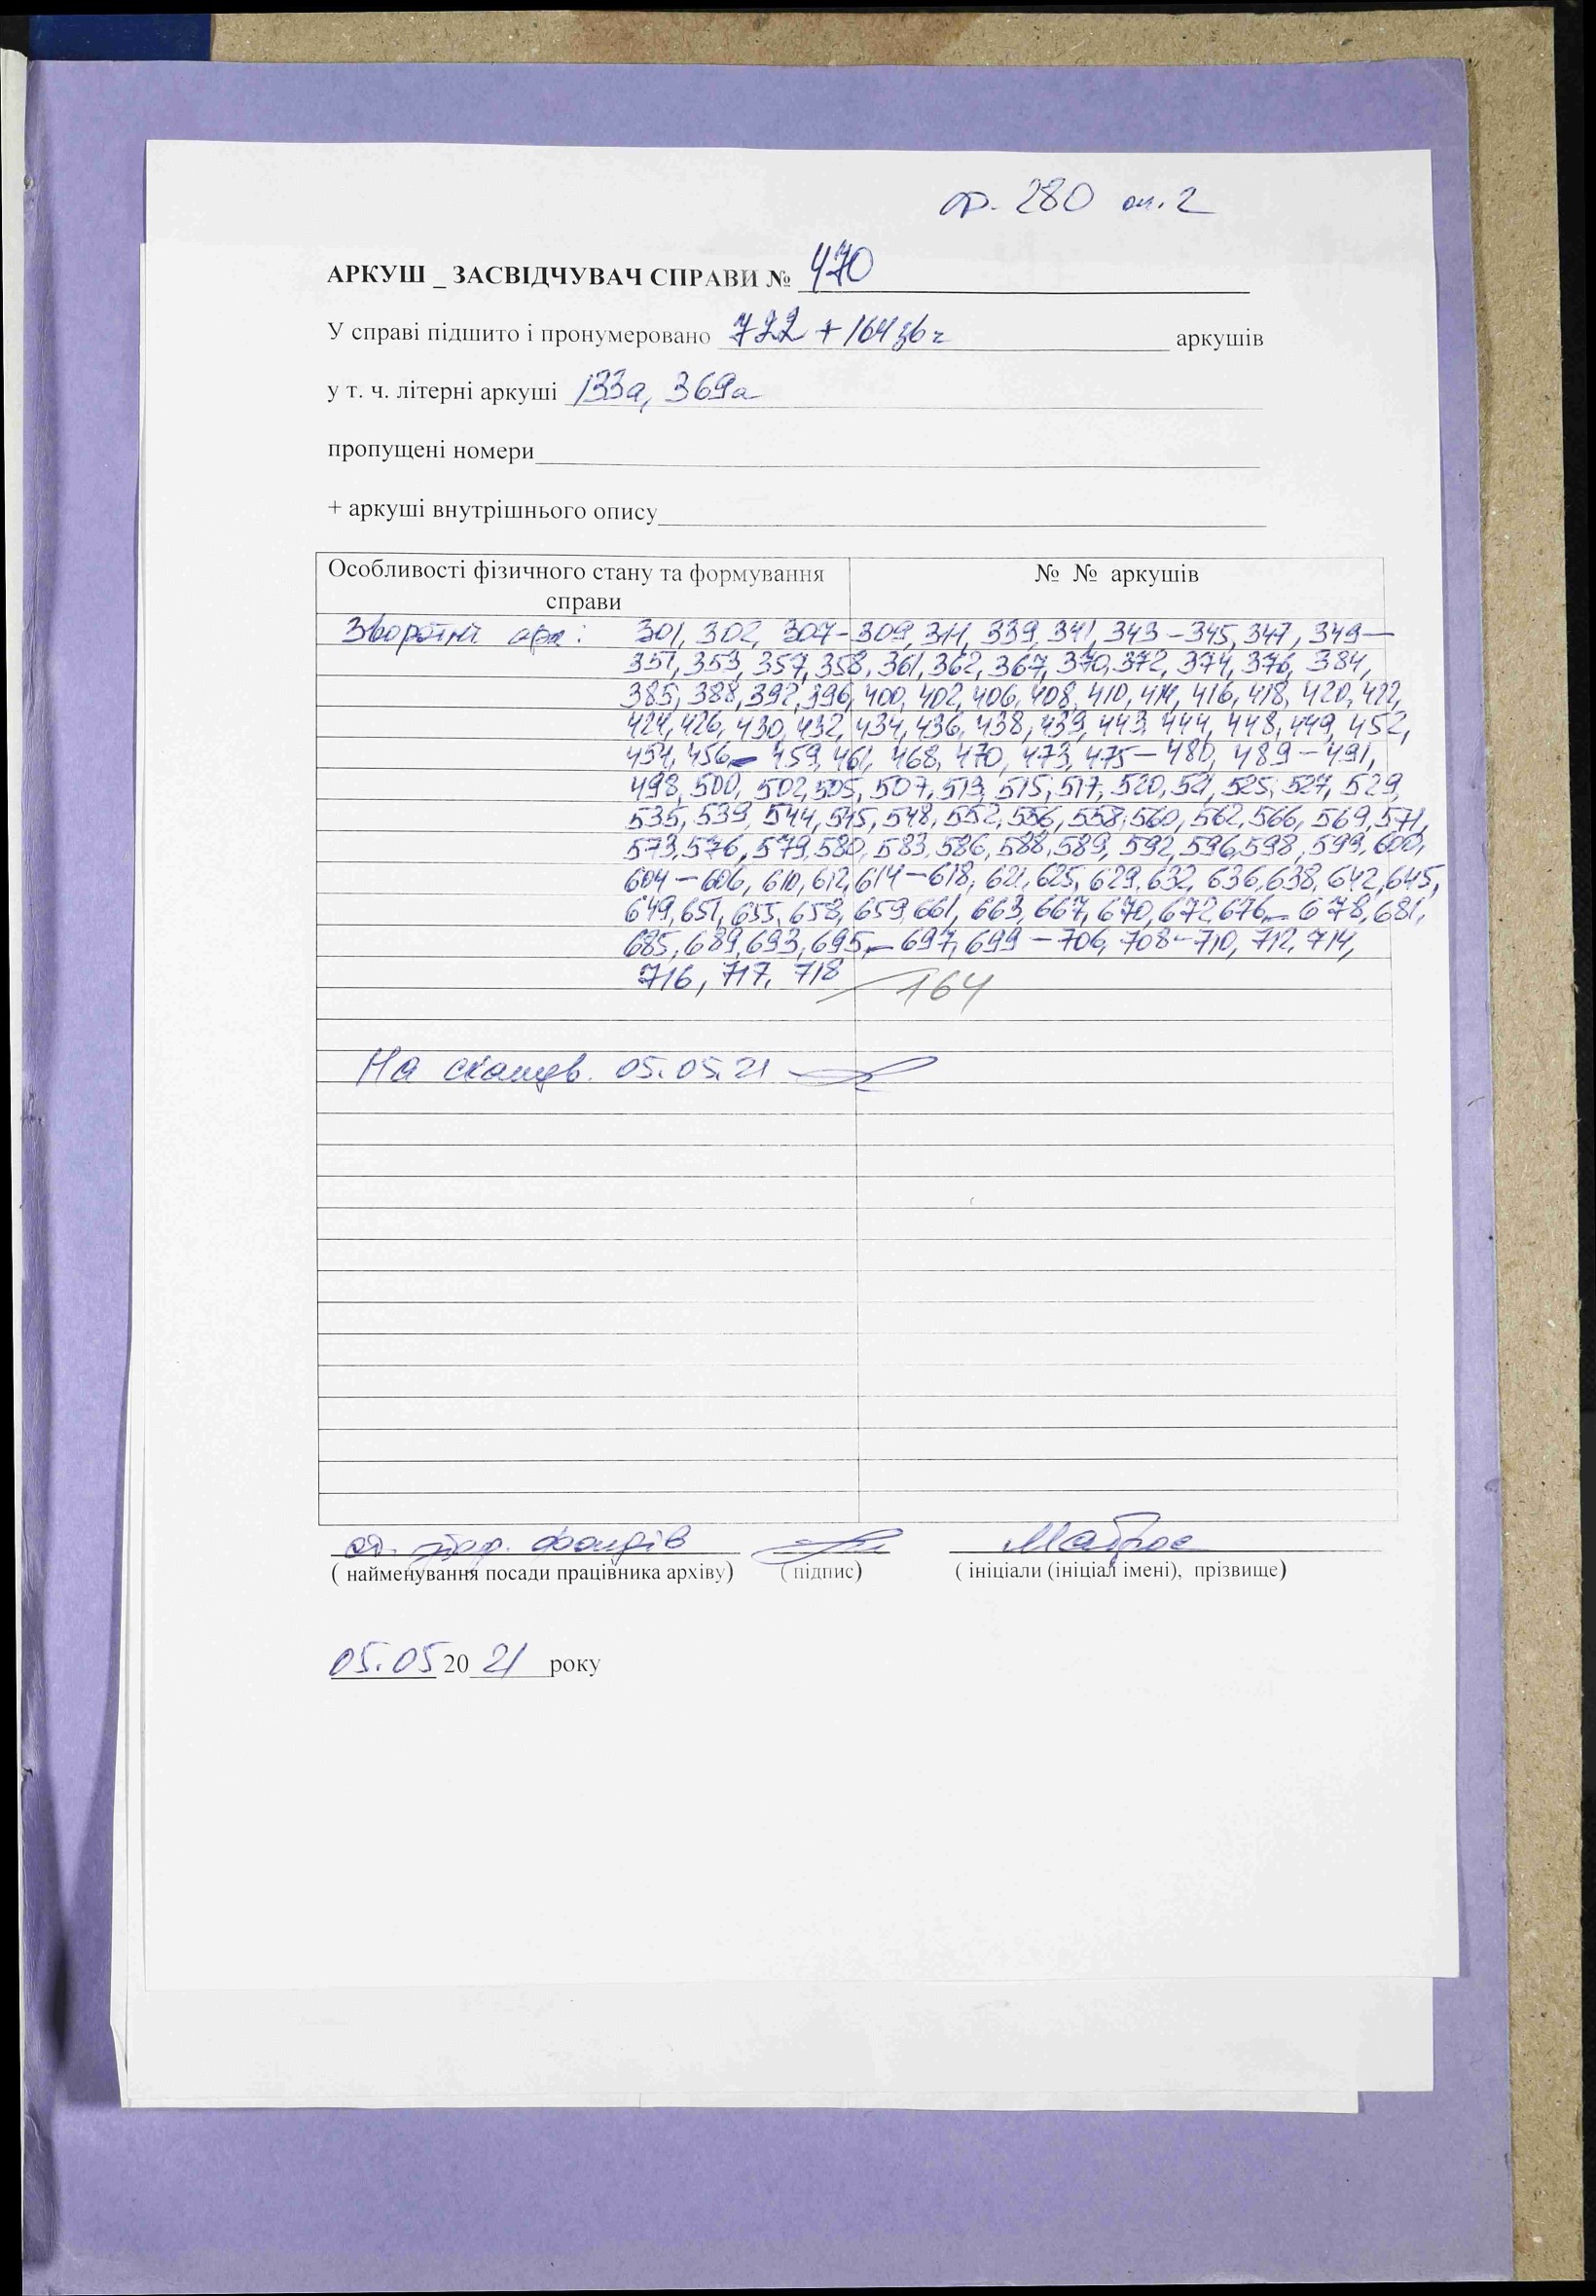 ф. 280 оп. 2
АРКУШ _ ЗАСВІДЧУВАЧ СПРАВИ № 470
У справі підшито і пронумеровано 722 + 164 зв = аркушів
у т. ч. літерні аркуші 133а, 369а
пропущені номери
+ аркуші внутрішнього опису
Особливості фізичного стану та формування справи
№ № аркушів
Зворотні арк: 301, 302, 307-309, 311, 339, 341, 343-345, 347, 349-
351, 353, 357, 358, 361, 362, 367, 370, 372, 374, 376, 384,
385, 388, 392, 396, 400, 402, 406, 408, 410, 414, 416, 418, 420, 422,
424, 426, 430, 432, 434, 436, 438, 439, 443, 444, 448, 449, 452,
454, 456-459, 461, 468, 470, 473, 475-480, 489-491,
498, 500, 502, 505, 507, 513, 515, 517, 520, 521, 525, 527, 529,
535, 539, 544, 545, 548, 552, 556, 558, 560, 562, 566, 569, 571,
573, 576, 579, 580, 583, 586, 588, 589, 592, 596, 598, 599, 600,
604-606, 610, 612, 614-618, 621, 625, 629, 632, 636, 638, 642, 645,
649, 651, 655, 658, 659, 661, 663, 667, 670, 672, 676-678, 681,
685, 689, 693, 695-697, 699-706, 708-710, 712, 714,
716, 717, 718 164
На сканув. 05.05.21
фондів
( найменування посади працівника архіву) ( підпис) ( ініціали (ініціал імені), прізвище)
05.05 20 21 року